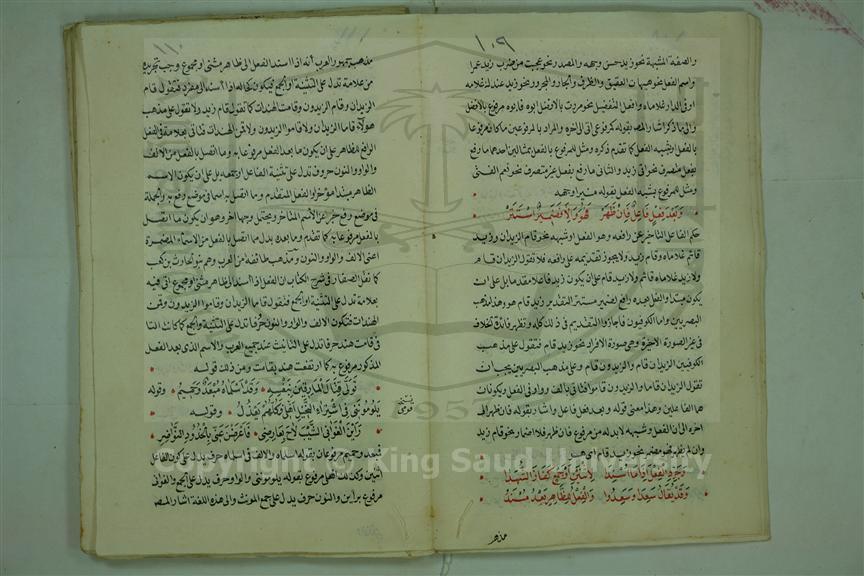 ١٠٩
والصفة المشبهة نحو زيد حسن وجهه والمصدر نحو عجبت من ضرب زيد عمرا
واسم الفعل نحو هيهات العقيق والظرف والجار والمجرور نحو زيد عندك غلامه
او في الدار غلاماه وافعل التفضيل نحو مررت بالافضل ابوه فابوه مرفوع بالافضل
والى ما ذكر اشار المصـ بقوله كمرفوعى اتى الى اخره والمراد بالمرفوعين ما كان مرفوعا
بالفعل او بشبه الفعل كما تقدم ذكره ومثل للمرفوع بالفعل بمثالين احدهما ما رفع
بفعل متصرف نحو اتى زيد والثانى ما رفع بفعل غير متصرف نحو نعم الفتى
ومثل للمرفوع بشبه الفعل بقوله منيرا وجهه
وبعد فعل فاعل فان ظهر فهو والا فضمير استتر
حكم الفاعل التاخير عن رافعه وهو الفعل او شبهه نحو قام الزيدان وزيد
قائم غلاماه وقام زيد ولا يجوز تقديمه على رافعه فلا تقول الزيدان قام
ولا زيد غلاماه قائم ولا زيد قام على ان يكون زيد فاعلا مقدما بل على ان
يكون مبتدا والفعل بعده رافع لضمير مستتر التقدير زيد قام هو وهذا مذهب
البصريين واما الكوفيون فاجازوا التقديم في ذلك كله وتظهر فائدة الخلاف
في غير الصورة الاخيرة وهى صورة الافراد نحو زيد قام فتقول على مذهب
الكوفيين الزيدان قام والزيدون قام وعلى مذهب البصريين يجب ان
تقول الزيدان قاما والزيدون قاموا فتاتى بالف وواو في الفعل ويكونان
هما الفاعلين وهذا معنى قوله وبعد فعل فاعل واشار بقوله فان ظهر الى
اخره الى ان الفعل وشبهه لا بد له من مرفوع فان ظهر فلا اضمار نحو قام زيد
وان لم يظهر فهو مضمر نحو زيد قام اى هو
وجرد الفعل اذا ما اسندا لاثنين او جمع كفاز الشهدا
وقد يقال سعدا وسعدوا والفعل للظاهر بعد مسند
مذهب
١١٠
مذهب جمهور العرب أنه اذا اسند الفعل الى ظاهر مثنى او مجموع وجب تجريده
من علامة تدل على التثنية او الجمع فيكون كحاله اذا اسند الى مفرد فتقول قام
الزيدان وقام الزيدون وقامت الهندات كما تقول قام زيد ولا تقول على مذهب
هولاء قاما الزيدان ولا قاموا الزيدون ولا قمن الهندات فتاتى بعلامة في الفعل
الرافع للظاهر على ان يكون ما بعد الفعل مرفوعا به وما اتصل بالفعل من الالف
والواو والنون حروف تدل على تثنية الفاعل او جمعه بل على ان يكون الاسم
الظاهر مبتدا مؤخرا والفعل المتقدم وما اتصل به اسما في موضع رفع به والجملة
في موضع رفع خبر عن الاسم المتاخر ويحتمل وجها اخر وهو ان يكون ما اتصل
بالفعل مرفوعا به كما تقدم وما بعده بدل مما اتصل بالفعل من الاسماء المضمرة
اعنى الالف والواو والنون ومذهب طائفة من العرب وهم بنو الحارث بن كعب
كما نقل الصفار في شرح الكتاب ان الفعل اذا اسند الى ظاهر مثنى او مجموع اتى فيه
بعلامة تدل على التثنية او الجمع فتقول قاما الزيدان وقاموا الزيدون وقمن
الهندات فتكون الالف والواو والنون حروفا تدل على التثنية والجمع كما كانت التا
في قامت هند حرفا تدل على التانيث عند جميع العرب والاسم الذى بعد الفعل
المذكور مرفوع به كما ارتفعت هند بقامت ومن ذلك قوله
تولى قتال المارقين بنفسه وقد اسلماه مبعد وحميم وقوله
يلوموننى في اشتراء النخيل اهلى فكلهم يعذل وقوله
راين الغوانى الشيب لاح بعارضى فاعرضن عنى بالخدود النواضر
فمبعد وحميم مرفوعان بقوله اسلماه والالف في اسلماه حرف يدل على كون الفاعل
اثنين وكذلك اهلى مرفوع بقوله يلوموننى والواو حرف يدل على الجمع والغوانى
مرفوع براين والنون حرف يدل على جمع المونث والى هذه اللغة اشار المصـ
نسخة
قومى
1957
Copyright © King Saud University